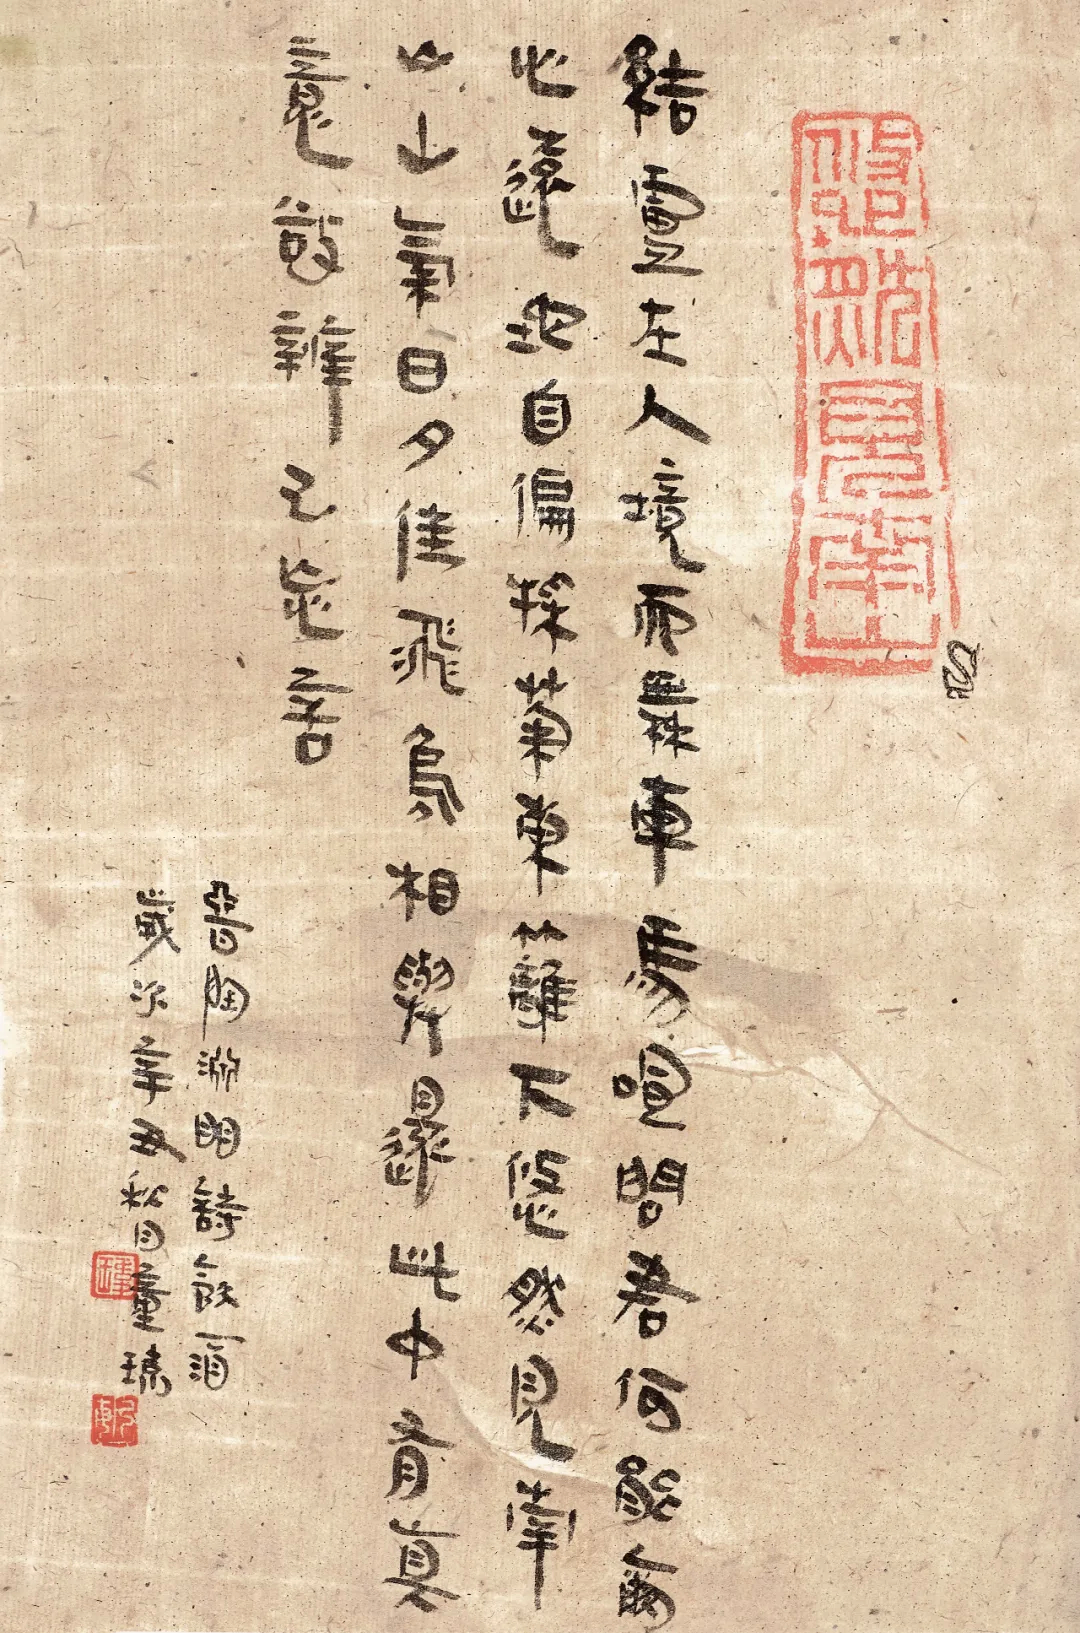 悠然見南山
結廬在人境而無車馬喧問君何能爾
心遠地自偏採菊東籬下悠然見南
山山氣日夕佳飛鳥相與還此中有真
意欲辨已忘言
晉陶淵明詩飲酒
歲次辛丑秋月童